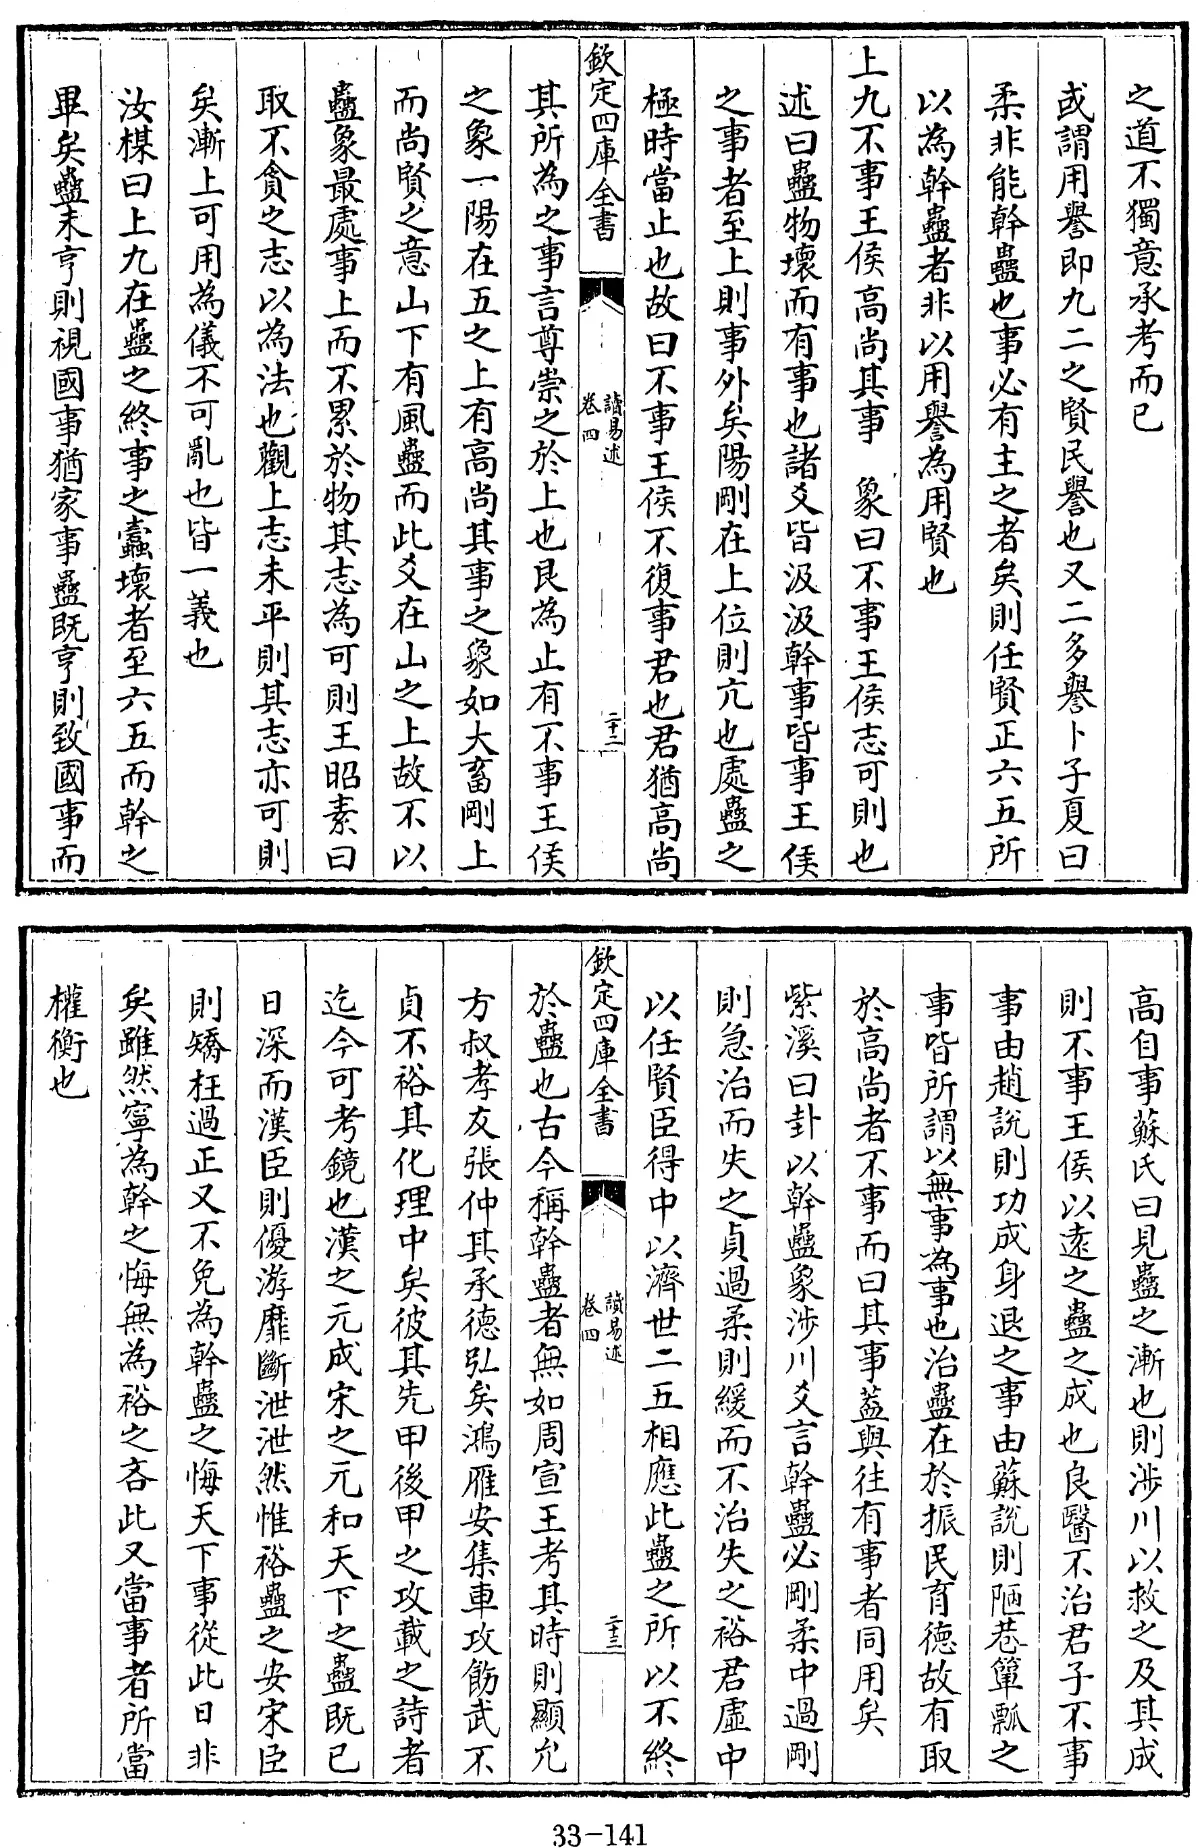 之道不獨意承考而已
或謂用譽即九二之賢民譽也又二多譽卜子夏曰
柔非能幹蠱也事必有主之者矣則任賢正六五所
以為幹蠱者非以用譽為用賢也
上九不事王侯高尚其事　象曰不事王侯志可則也
述曰蠱物壞而有事也諸爻皆汲汲幹事皆事王侯
之事者至上則事外矣陽剛在上位則亢也處蠱之
極時當止也故曰不事王侯不復事君也君猶高尚
欽定四庫全書
讀易述
卷四
二十二
其所為之事言尊崇之於上也艮為止有不事王侯
之象一陽在五之上有高尚其事之象如大畜剛上
而尚賢之意山下有風蠱而此爻在山之上故不以
蠱象最處事上而不累於物其志為可則王昭素曰
取不貪之志以為法也觀上志未平則其志亦可則
矣漸上可用為儀不可亂也皆一義也
汝楳曰上九在蠱之終事之蠹壞者至六五而幹之
畢矣蠱未亨則視國事猶家事蠱既亨則致國事而
高自事蘇氏曰見蠱之漸也則涉川以救之及其成
則不事王侯以遠之蠱之成也良醫不治君子不事
事由趙說則功成身退之事由蘇說則陋巷簞瓢之
事皆所謂以無事為事也治蠱在於振民育德故有取
於高尚者不事而曰其事葢與往有事者同用矣
紫溪曰卦以幹蠱象涉川爻言幹蠱必剛柔中過剛
則急治而失之貞過柔則緩而不治失之裕君虛中
以任賢臣得中以濟世二五相應此蠱之所以不終
欽定四庫全書
讀易述
卷四
二十三
於蠱也古今稱幹蠱者無如周宣王考其時則顯允
方叔孝友張仲其承德弘矣鴻雁安集車攻飭武不
貞不裕其化理中矣彼其先甲後甲之攻載之詩者
迄今可考鏡也漢之元成宋之元和天下之蠱既已
日深而漢臣則優游靡斷泄泄然惟裕蠱之安宋臣
則矯枉過正又不免為幹蠱之悔天下事從此日非
矣雖然寧為幹之悔無為裕之吝此又當事者所當
權衡也
33-141